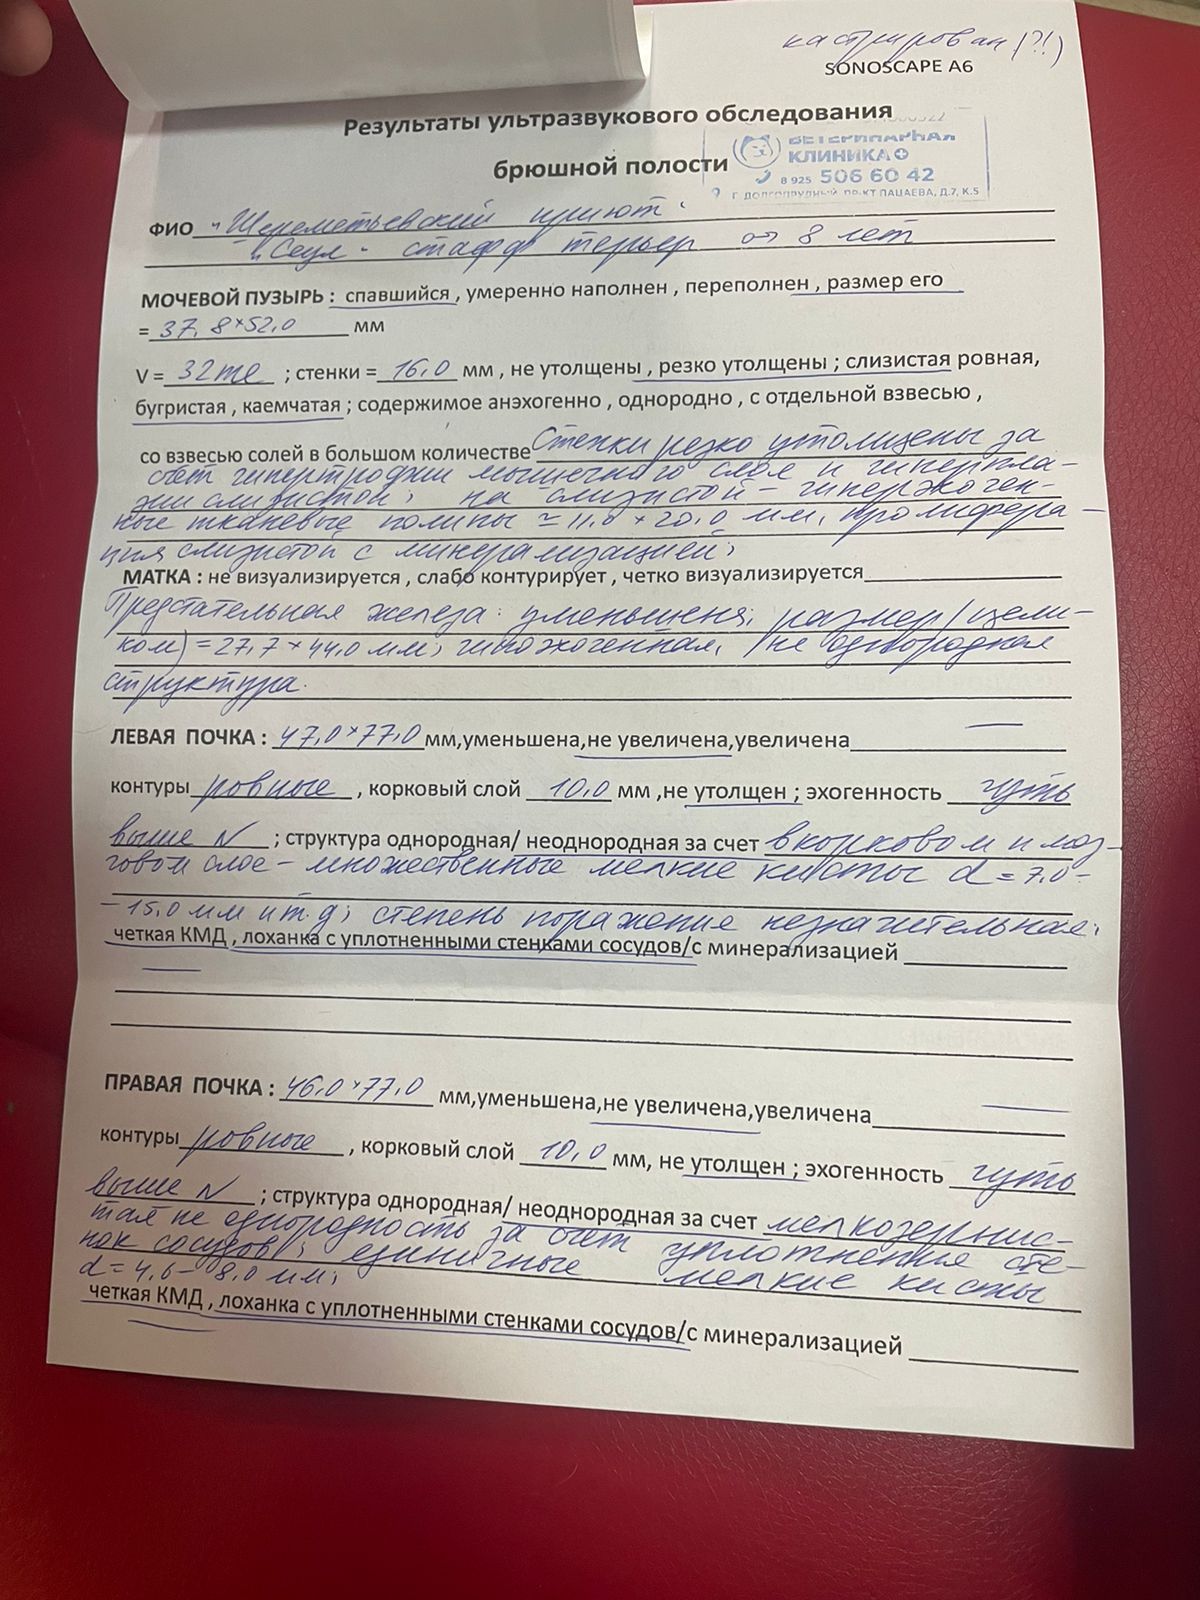 кастрирован (?!)
SONOSCAPE A6
Результаты ультразвукового обследования
брюшной полости
ВЕТЕРИНАРНАЯ
КЛИНИКА
8 925 506 60 42
Г. ДОЛГОПРУДНЫЙ, ПР-КТ ПАЦАЕВА, Д.7, К.5
ФИО "Шереметьевский приют".
"Сеул" - стафф терьер 8 лет
МОЧЕВОЙ ПУЗЫРЬ : спавшийся , умеренно наполнен , переполнен , размер его
= 37,8 × 52,0 мм
V = 32 ml ; стенки = 16,0 мм , не утолщены , резко утолщены ; слизистая ровная,
бугристая , каемчатая ; содержимое анэхогенно , однородно , с отдельной взвесью ,
со взвесью солей в большом количестве Стенки резко утолщены за
счет гипертрофии мышечного слоя и гиперпла-
зии слизистой; на слизистой - гиперэхоген-
ные тканевые полипы ≈ 11,0 × 20,0 мм, пролифера-
ция слизистой с минерализацией;
МАТКА : не визуализируется , слабо контурирует , четко визуализируется
Предстательная железа: уменьшена, размер (цели-
ком) = 27,7 × 44,0 мм; гипоэхогенная, неоднородная
структура.
ЛЕВАЯ ПОЧКА : 47,0 × 77,0 мм,уменьшена,не увеличена,увеличена —
контуры ровные , корковый слой 10,0 мм ,не утолщен ; эхогенность чуть
выше N ; структура однородная/ неоднородная за счет в корковом и моз-
говом слое - множественные мелкие кисты d = 7,0 -
- 15,0 мм и т.д; степень поражения незначительная.
четкая КМД , лоханка с уплотненными стенками сосудов/с минерализацией
ПРАВАЯ ПОЧКА : 46,0 × 77,0 мм,уменьшена,не увеличена,увеличена —
контуры ровные , корковый слой 10,0 мм, не утолщен ; эхогенность чуть
выше N ; структура однородная/ неоднородная за счет мелкозернис-
тая не однородность за счет уплотнения сте-
нок сосудов; единичные мелкие кисты
d = 4,6 - 8,0 мм;
четкая КМД , лоханка с уплотненными стенками сосудов/с минерализацией